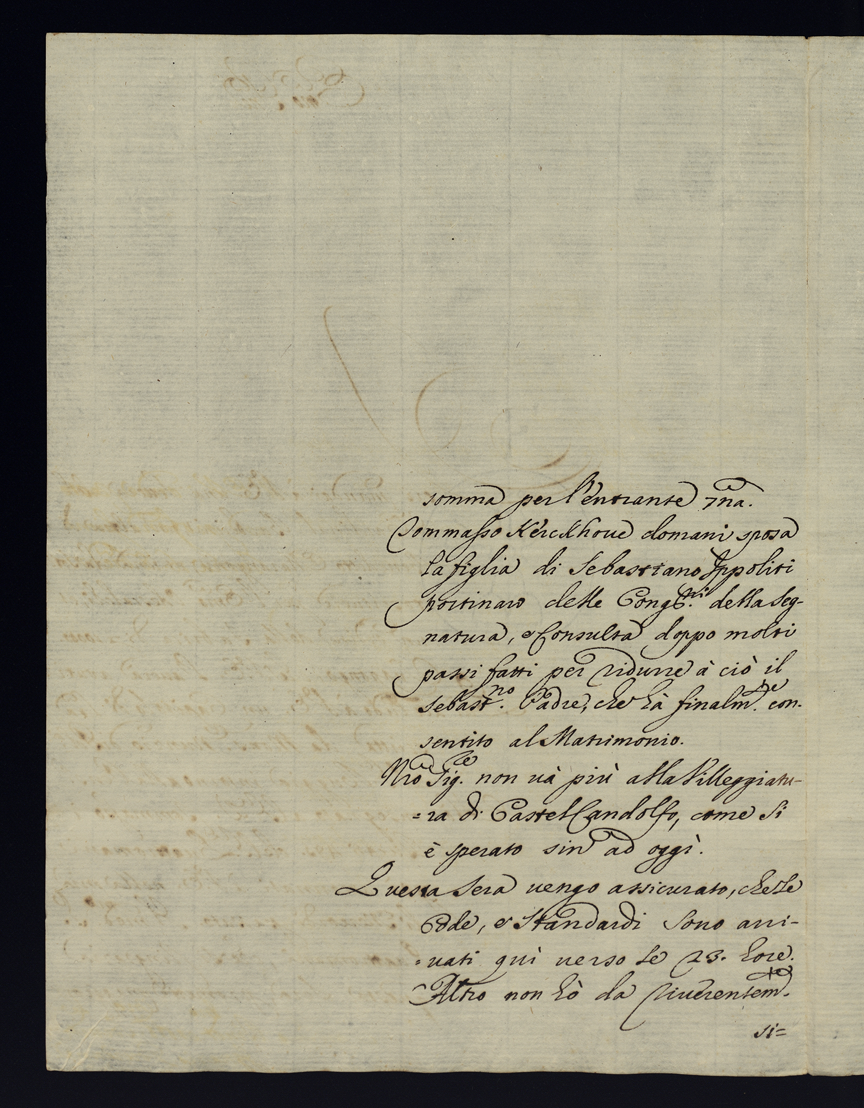 somma per l'entrante 7mna.
Tommasso Kerckhoue domani sposa
la figlia di Sebastiano Ippoliti
portinaro delle Congr.ni della Seg-
natura, e Consulta doppo molti
passi fatti per ridurre à ciò il
Sebast.no Padre, che hà finalm.te con-
sentito al Matrimonio.
Nro Sig.re non và più alla Villeggiatu-
=ra di Castel Gandolfo, come si
è sperato sin' ad oggi.
Questa sera vengo assicurato, che le
e Standardi sono arri-
=vati quì verso le 23. hore.
Altro non hò da riverentem.te
si=